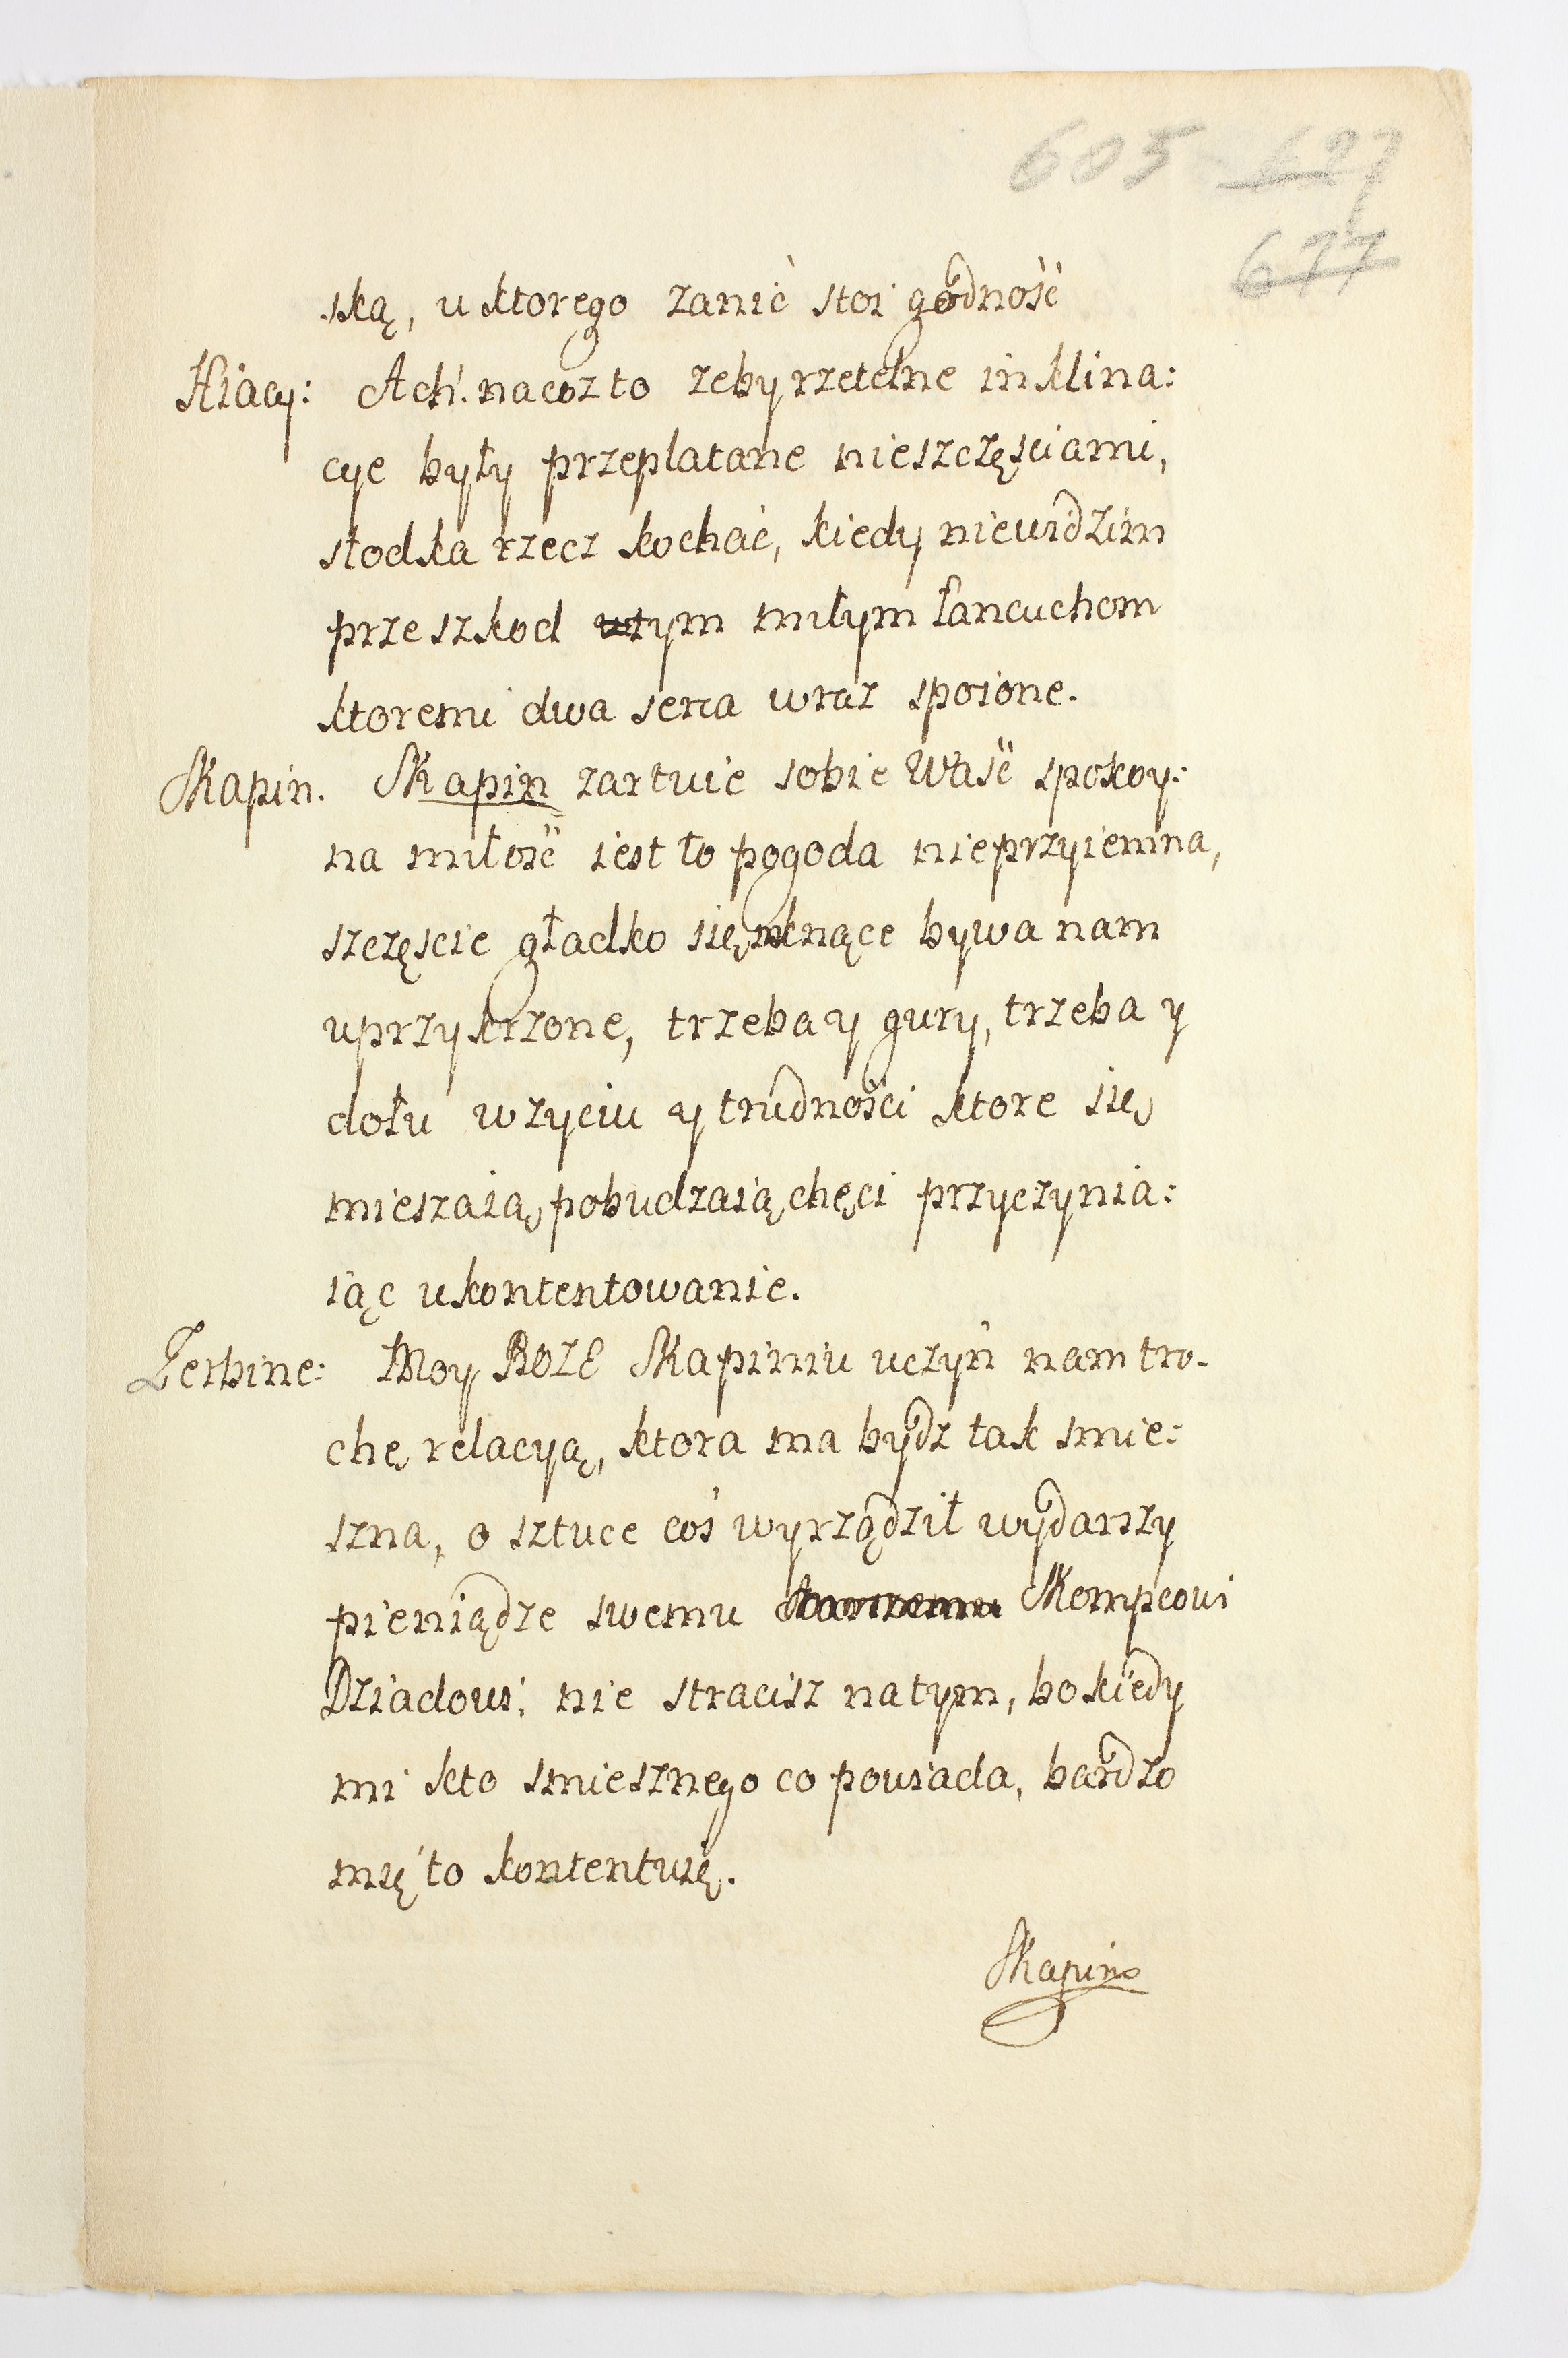 605 627
677
ską, u ktorego zanić stoi godność
Hiacy: Ach! nacozto zeby rzetelne inklina:
cye były przeplatane nieszczęsciami,
słodka rzecz kochać, kiedy niewidzim
przeszkod wtym miłym łancuchom
ktoremi dwa serca wraz spoione.
Skapin. Skapin zartuie sobie Waść spokoy:
na miłość iest to pogoda nieprzyiemna,
szczęscie gładko się mknące bywa nam
uprzykrzone, trzeba y gury, trzeba y
dołu w zyciu y trudności ktore się
mieszaią, pobudzaią chęci przyczynia:
iąc ukontentowanie.
Zerbine: Moy BOZE Skapiniu uczyń nam tro-
chę relacyą, ktora ma bydz tak smie:
szna, o sztuce coś wyrządził wydarszy
pieniądze swemu Skompcowi
Dziadowi; nie stracisz natym, bo kiedy
mi kto smiesznego co powiada, bardzo
mię to kontentuię.
Skapin